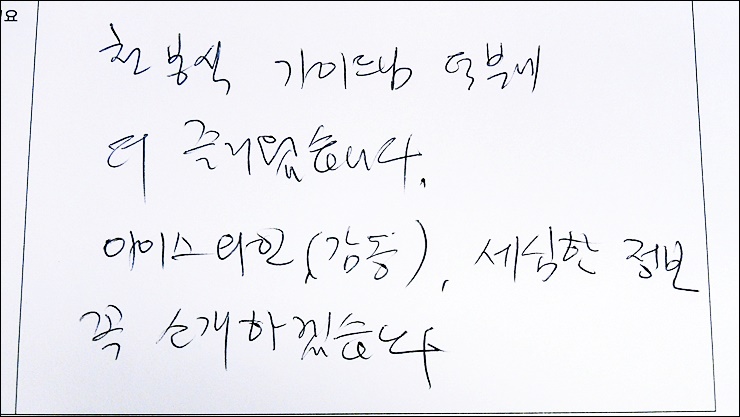 요
천봉식 가이드님 덕분에
더 즐거웠습니다.
아이스와인(감동), 세심한 정보
꼭 소개하겠습니다